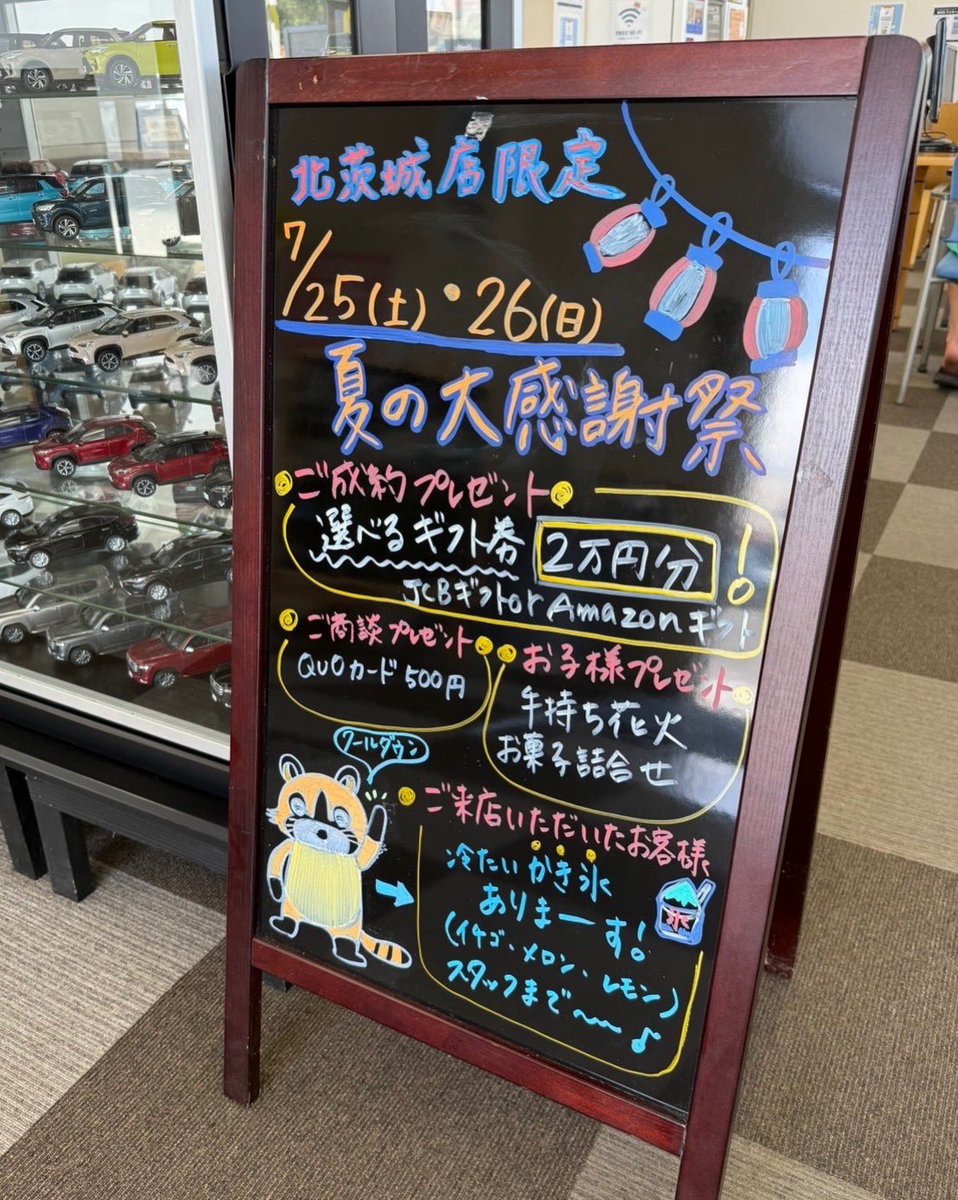 FREE Wi-Fi
北茨城店限定
7/25(土)・26(日)
夏の大感謝祭
ご成約プレゼント
選べるギフト券 2万円分!
JCBギフトor Amazonギフト
ご商談プレゼント
QUOカード500円
お子様プレゼント
手持ち花火
お菓子詰合せ
クールダウン
ご来店いただいたお客様
冷たいかき氷
ありまーす!
氷
(イチゴ、メロン、レモン)
スタッフまで〜♪